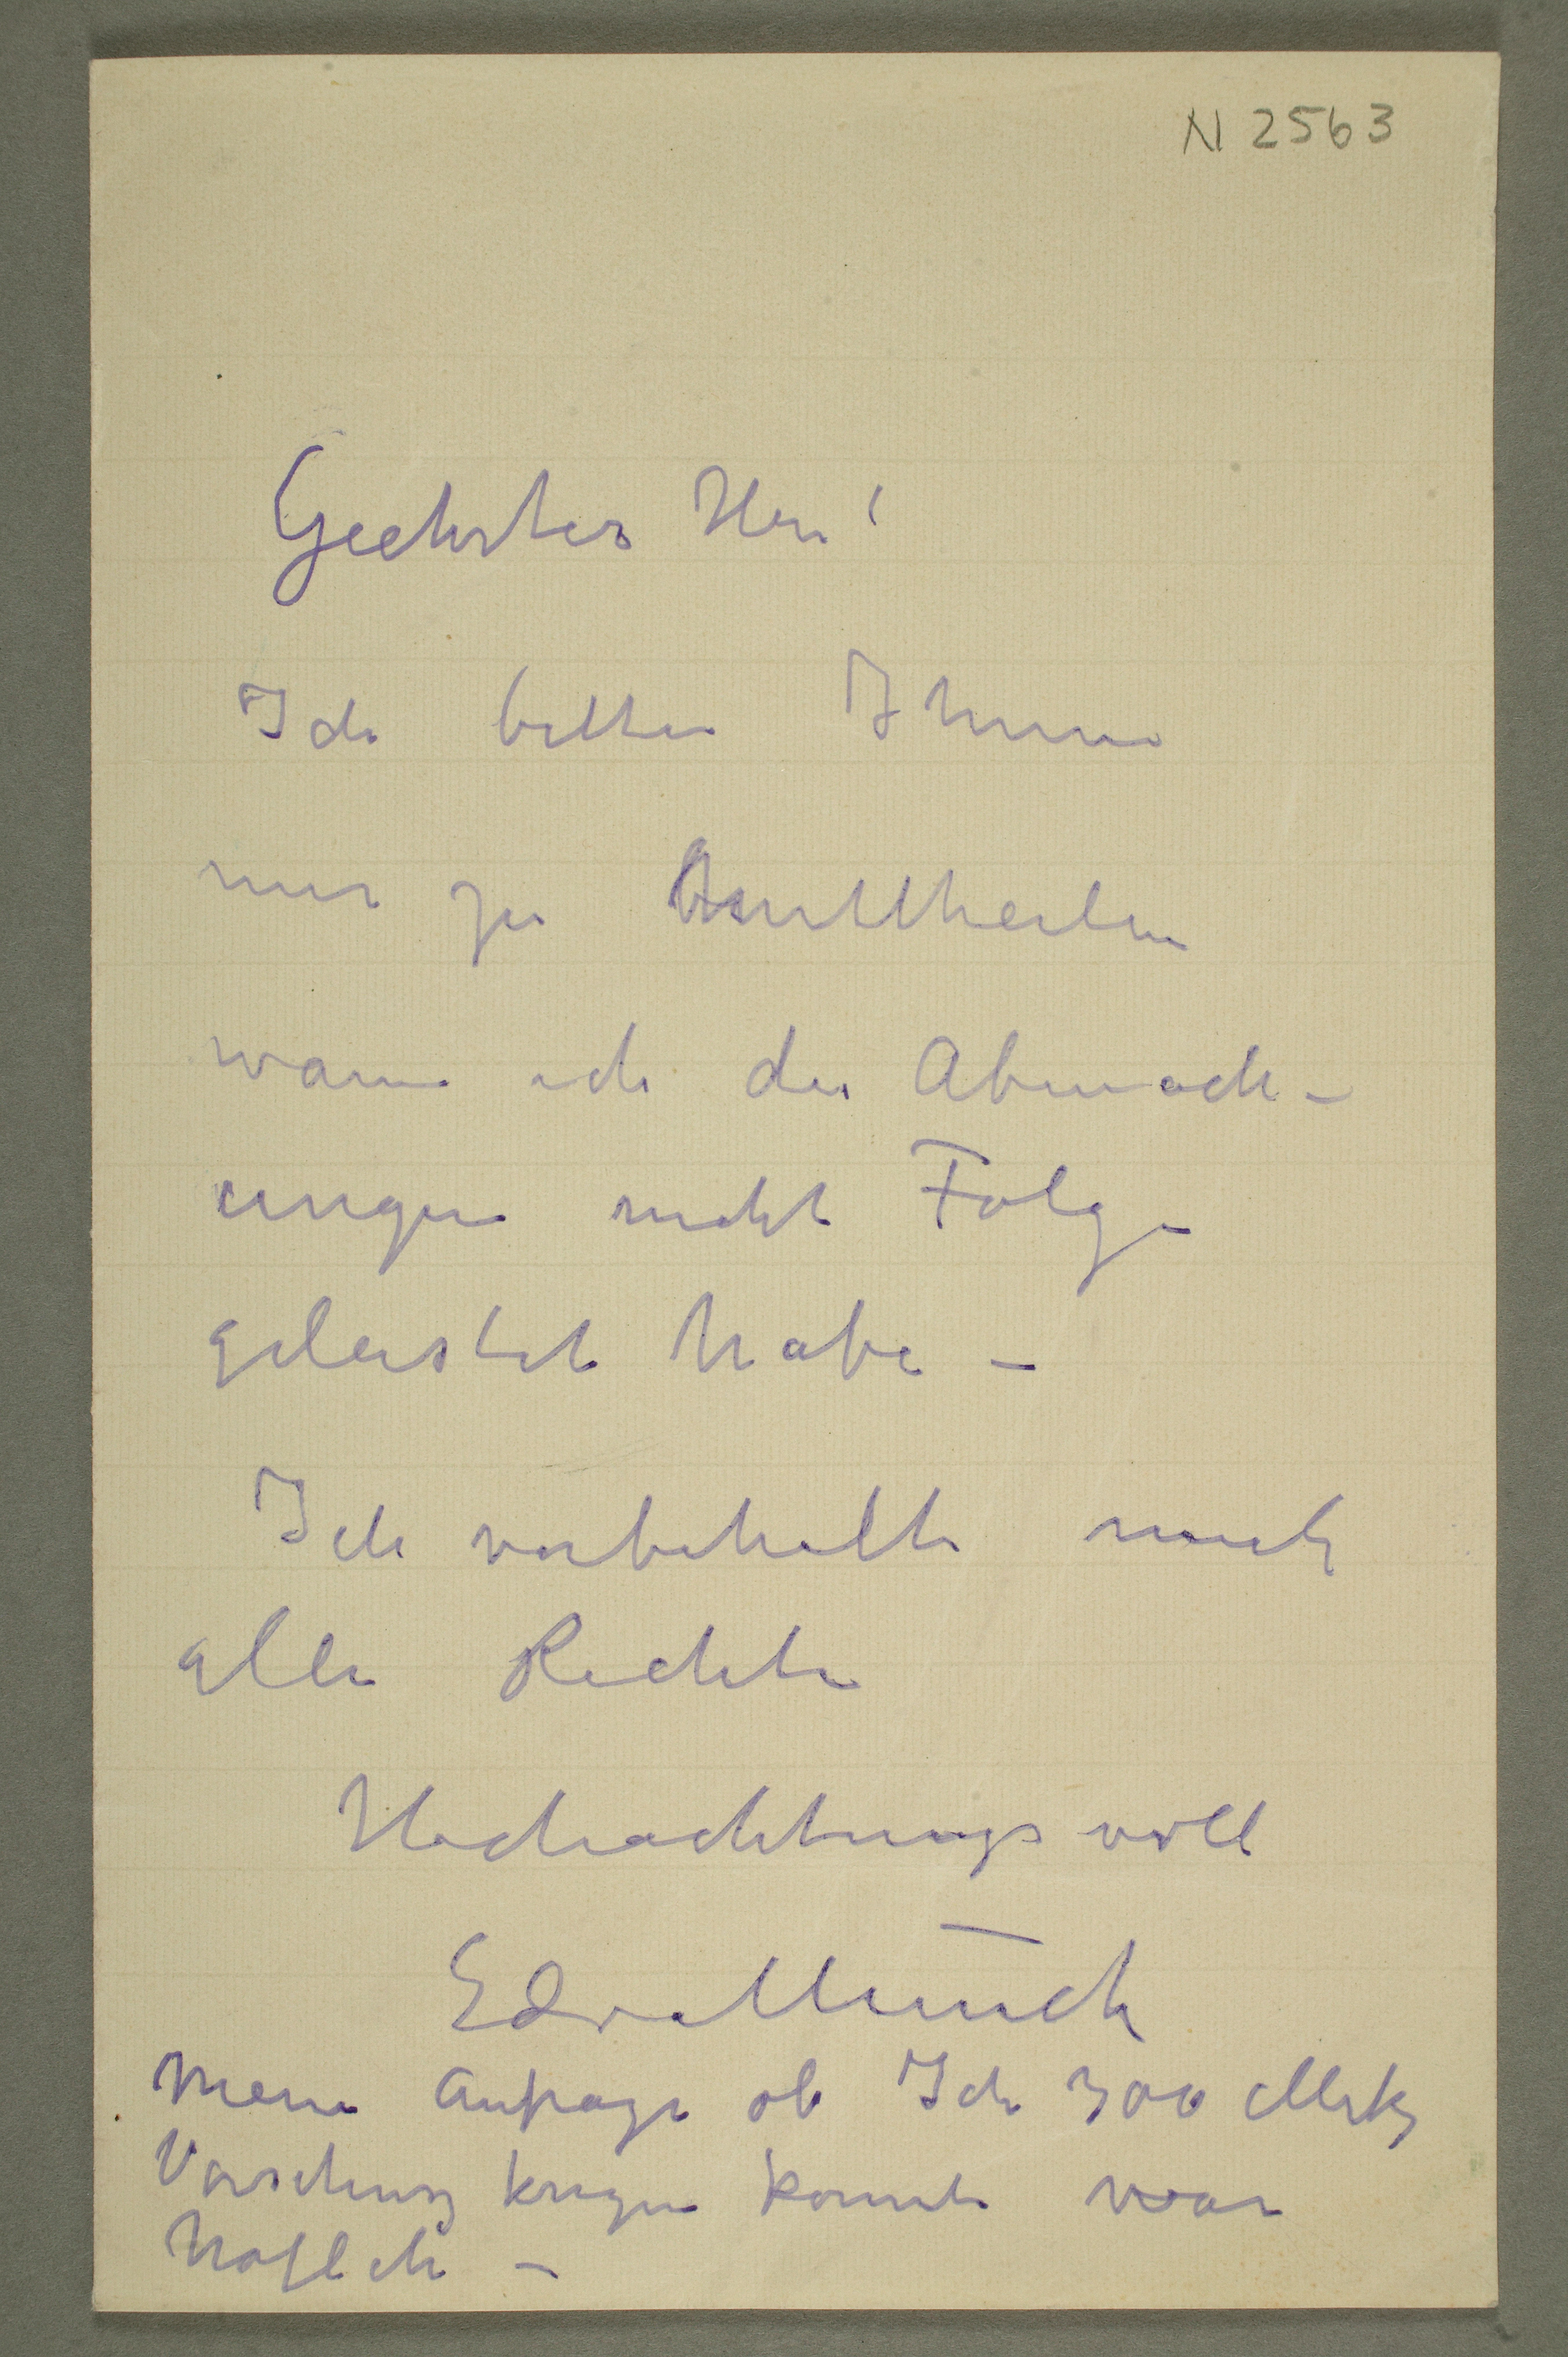 N 2563
Geehrter Herr!
Ich bitte Ihnen
mir zu mittheilen
wann ich die Abmach-
ungen nicht Folge
geleistet habe –
Ich vorbehalte mich
alle Rechte
Hochachtungsvoll
Edv. Munch
Meine Anfrage ob Ich 300 Mrk
Vorschusz kriegen konnte war
höflich –